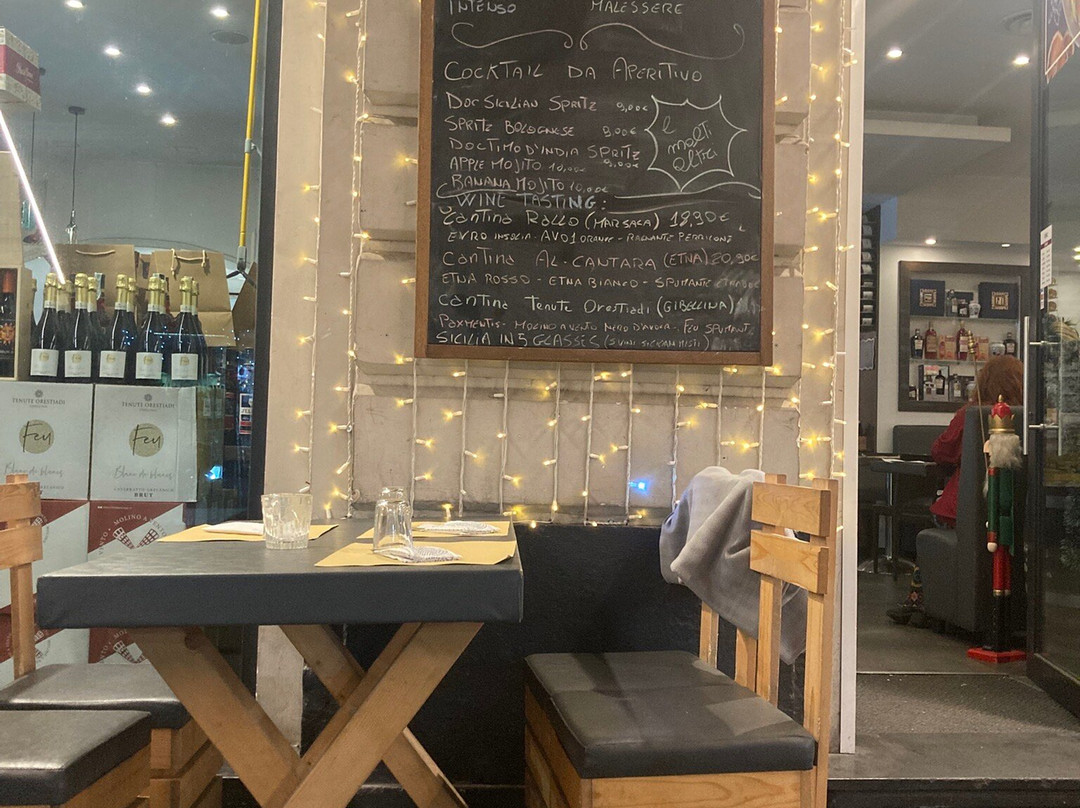 INTENSO MALESSERE
COCKTAIL DA APERITIVO
DOC SICILIAN SPRITZ 9,00€
SPRITZ BOLOGNESE 9,00€
DOCTIMO D'INDIA SPRITZ 9,00€
APPLE MOJITO 10,00€
BANANA MOJITO 10,00€
E molti altri
WINE TASTING:
Cantina RALLO (MARSALA) 18,90€
EVRO INSOLIA - AV01 ORANGE - RADIANTE PERRICONE
Cantina AL-CANTARA (ETNA) 20,90€
ETNA ROSSO - ETNA BIANCO - SPUMANTE
Cantina Tenute Orestiadi (GIBELLINA)
PAXMENTIS - MOLINO A VENTO NERO D'AVOLA - FEU SPUMANTE
SICILIA IN 5 GLASSES (5 VINI SICILIANI MISTI)
TENUTE ORESTIADI
Feu
Blanc de blancs
TENUTE ORESTIADI
Feu
Blanc de blancs
BRUT
MOLINO A VENTO